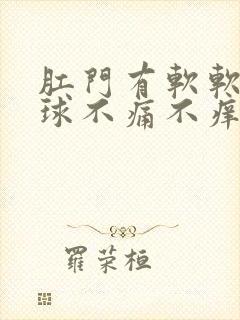 肛門有軟軟
球不痛不痒
羅荣桓